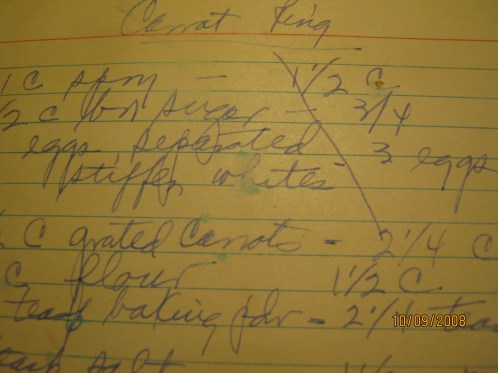 Carrot Ring
1 C spry - 1 1/2 C
1/2 C bn sugar - 3/4
eggs, separated 3 eggs
stiffen whites
C grated Carrots - 2 1/4 C
C flour 1 1/2 C.
teas baking pdr - 2 1/4 teas
10/09/2008
salt